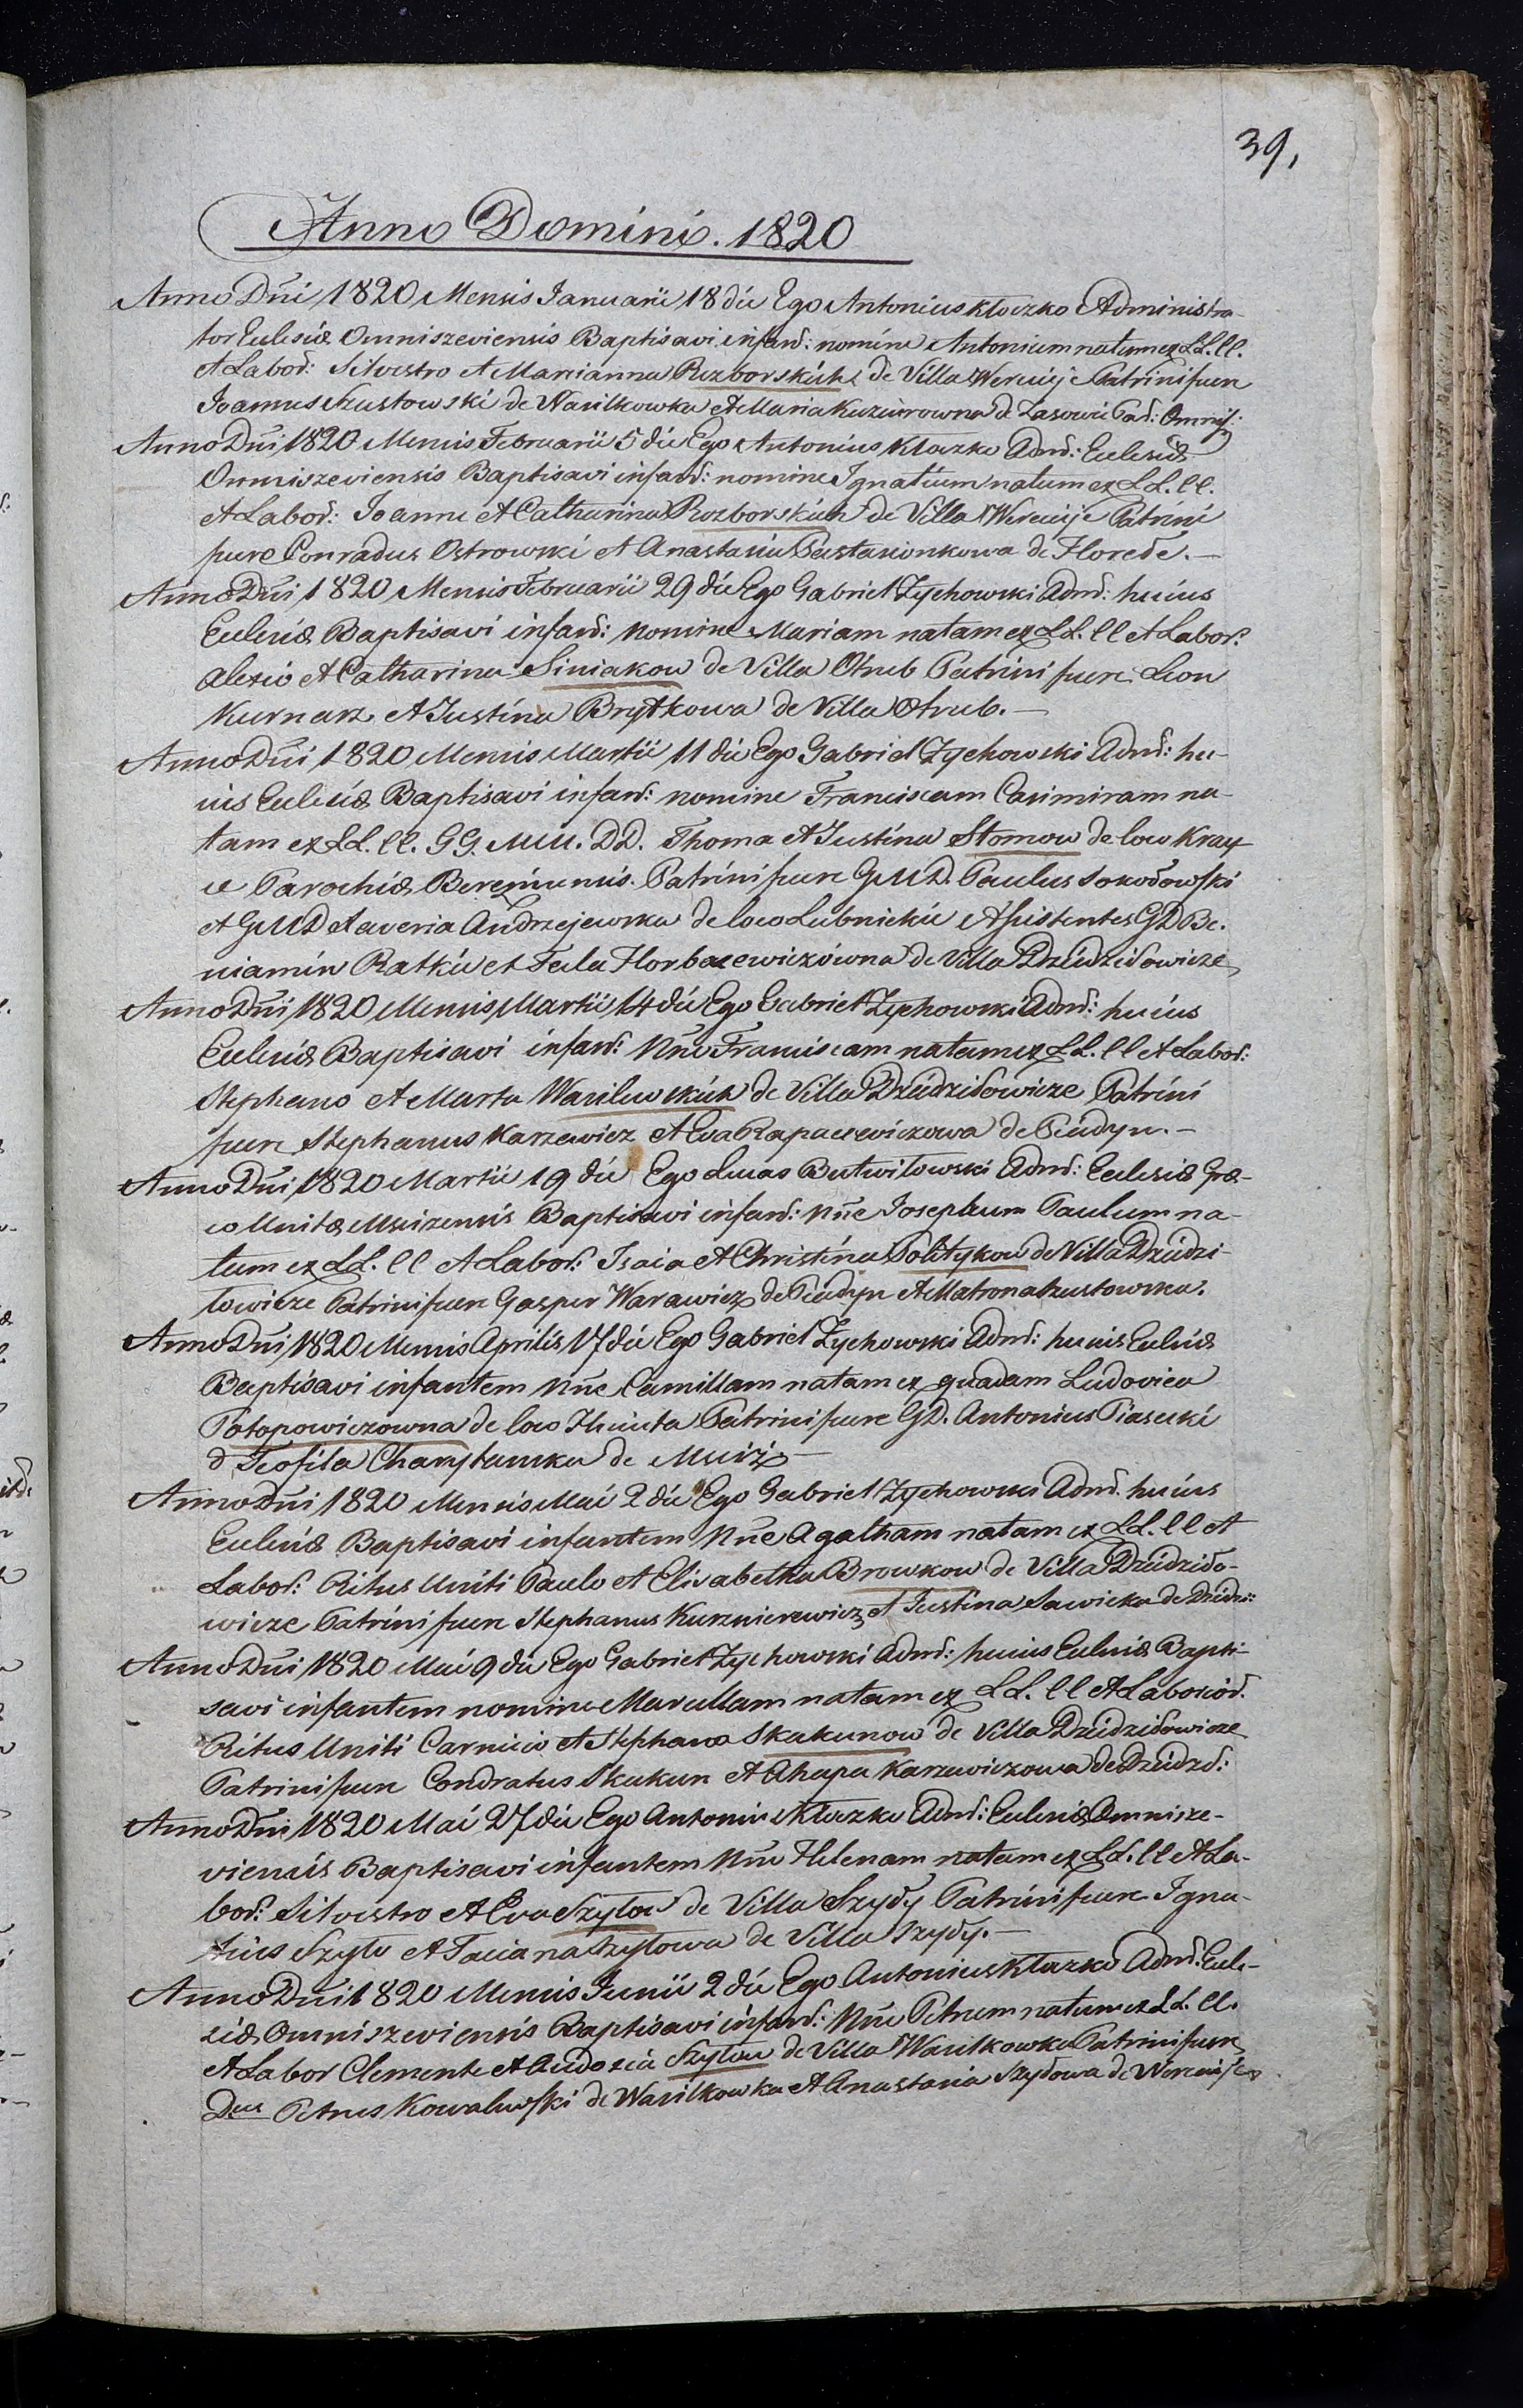 39,
Anno Domini. 1820
Anno Dñi 1820 Mensis Januarii 18 die Ego Antonius Kloczko Administra-
tor Eclesiæ Omniszeviensis Baptisavi infant: nomine Antonium natum ex LL. ll.
et Labor: Silvestro et Marianna Rozborskich de Villa Wereuje Patrini fuere
Joannes Szustowski de Wasilkowka et Maria de Lasowie Par: Omnis:
Anno Dñi 1820 Mensis Februarii 5 die Ego Antonius Kloczko Admr: Eclesiæ
Omniszeviensis Baptisavi infant: nomine Ignatium natum ex LL. ll.
et Labor: Joanne et Catharina Rozborskich de Villa Wereuje Patrini
fuere Conradus Ostrowski et Anastasia de Horode. —
Anno Dñi 1820 Mensis Februarii 29 die Ego Gabriel Zychowski Admr: huius
Eclesiæ Baptisavi infant: nomine Mariam natam ex LL. ll et Labor:
Alexio et Catharina Siniakow de Villa Otrub Patrini fuere Leon
Kurnarz et Justina Brytkowa de Villa Otrub. —
Anno Dñi 1820 Mensis Martii 11 die Ego Gabriel Zychowski Admr: hu-
ius Eclesiæ Baptisavi infant: nomine Franciscam Casimiram na-
tam ex LL. ll. GG. MM. DD. Thoma et Justina Stomow de loco Kray
Parochiæ Patrini fuere GMD. Paulus Sokołowski
et GMD Xaveria Andrzejewska de loco Lubnickie Assistentes GD Be-
niamin Ratkie et Tecla Horbacewiczówna de Villa Dziedziłowicze
Anno Dñi 1820 Mensis Martii 14 die Ego Gabriel Zychowski Admr: huius
Eclesiæ Baptisavi infant: Nñe Franciscam natam ex LL. ll et Labor:
Stephano et Marta Wasilewskich de Villa Dziedziłowicze Patrini
fuere Stephanus Karzewicz et Eva Rapacewiczowa de Piadyn. —
Anno Dñi 1820 Martii 19 die Ego Lucas Butwiłowski Admr: Eclesiæ Græ-
co Unitæ Mscizensis Baptisavi infant: Nñe Josephum Paulum na-
tum ex LL. ll et Labor: Isaia et Christina Politykow de Villa Dziedzi-
łowicze Patrini fuere Gasper Warawicz de Piadyn et Matrona Szustowska.
Anno Dñi 1820 Mensis Aprilis 17 die Ego Gabriel Zychowski Admr: huius Eclesiæ
Baptisavi infantem Nñe Camillam natam ex quadam Ludovica
Potopowiczowna de loco Patrini fuere GD. Antonius Piasecki
et Teofila de Msciż —
Anno Dñi 1820 Mensis Mai 2 die Ego Gabriel Zychowski Admr. huius
Eclesiæ Baptisavi infantem Nñe Agatham natam ex LL. ll et
Labor: Ritus Uniti Paulo et Elisabetha Browkow de Villa Dziedziło-
wicze Patrini fuere Stephanus Kurznierewicz et Justina Sawicka de Dziedzi:
Anno Dñi 1820 Mai 9 die Ego Gabriel Zychowski Admr: huius Eclesiæ Bapti-
savi infantem nomine Marcellam natam ex LL. ll et Laborior.
Ritus Uniti et Stephana Skakunow de Villa Dziedziłowicze
Patrini fuere Condratus Skakun et Ahapa Karzewiczowa de Dziedzi:
Anno Dñi 1820 Mai 27 die Ego Antonius Kloczko Admr: Eclesiæ Omnisze-
viensis Baptisavi infantem Nñe Helenam natam ex LL. ll et La-
bor: Silvestro et Eva Szyłow de Villa Szyły Patrini fuere Igna-
tius Szyło et Taciana Szyłowa de Villa Szyły. —
Anno Dñi 1820 Mensis Junii 2 die Ego Antonius Kloczko Admr: Ecle-
siæ Omniszeviensis Baptisavi infant: Nñe Petrum natum ex LL. ll.
et Labor Clemente et Eudoxia Szyłow de Villa Wasilkowka Patrini fuere
Petrus Kowalewski de Wasilkowka et Anastasia Szyłowa de